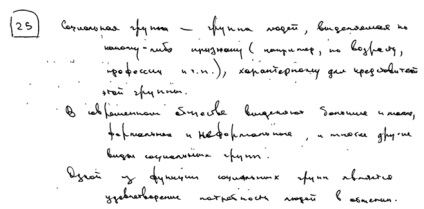 25 Социальная группа — группа людей, выделяемая по
какому-либо признаку (например, по возрасту,
профессии и т.п.), характерному для представителей
этой группы.
В современном обществе выделяют большие и малые,
формальные и неформальные, и многие другие
виды социальных групп.
Одной из функций социальных групп является
удовлетворение потребности людей в общении.